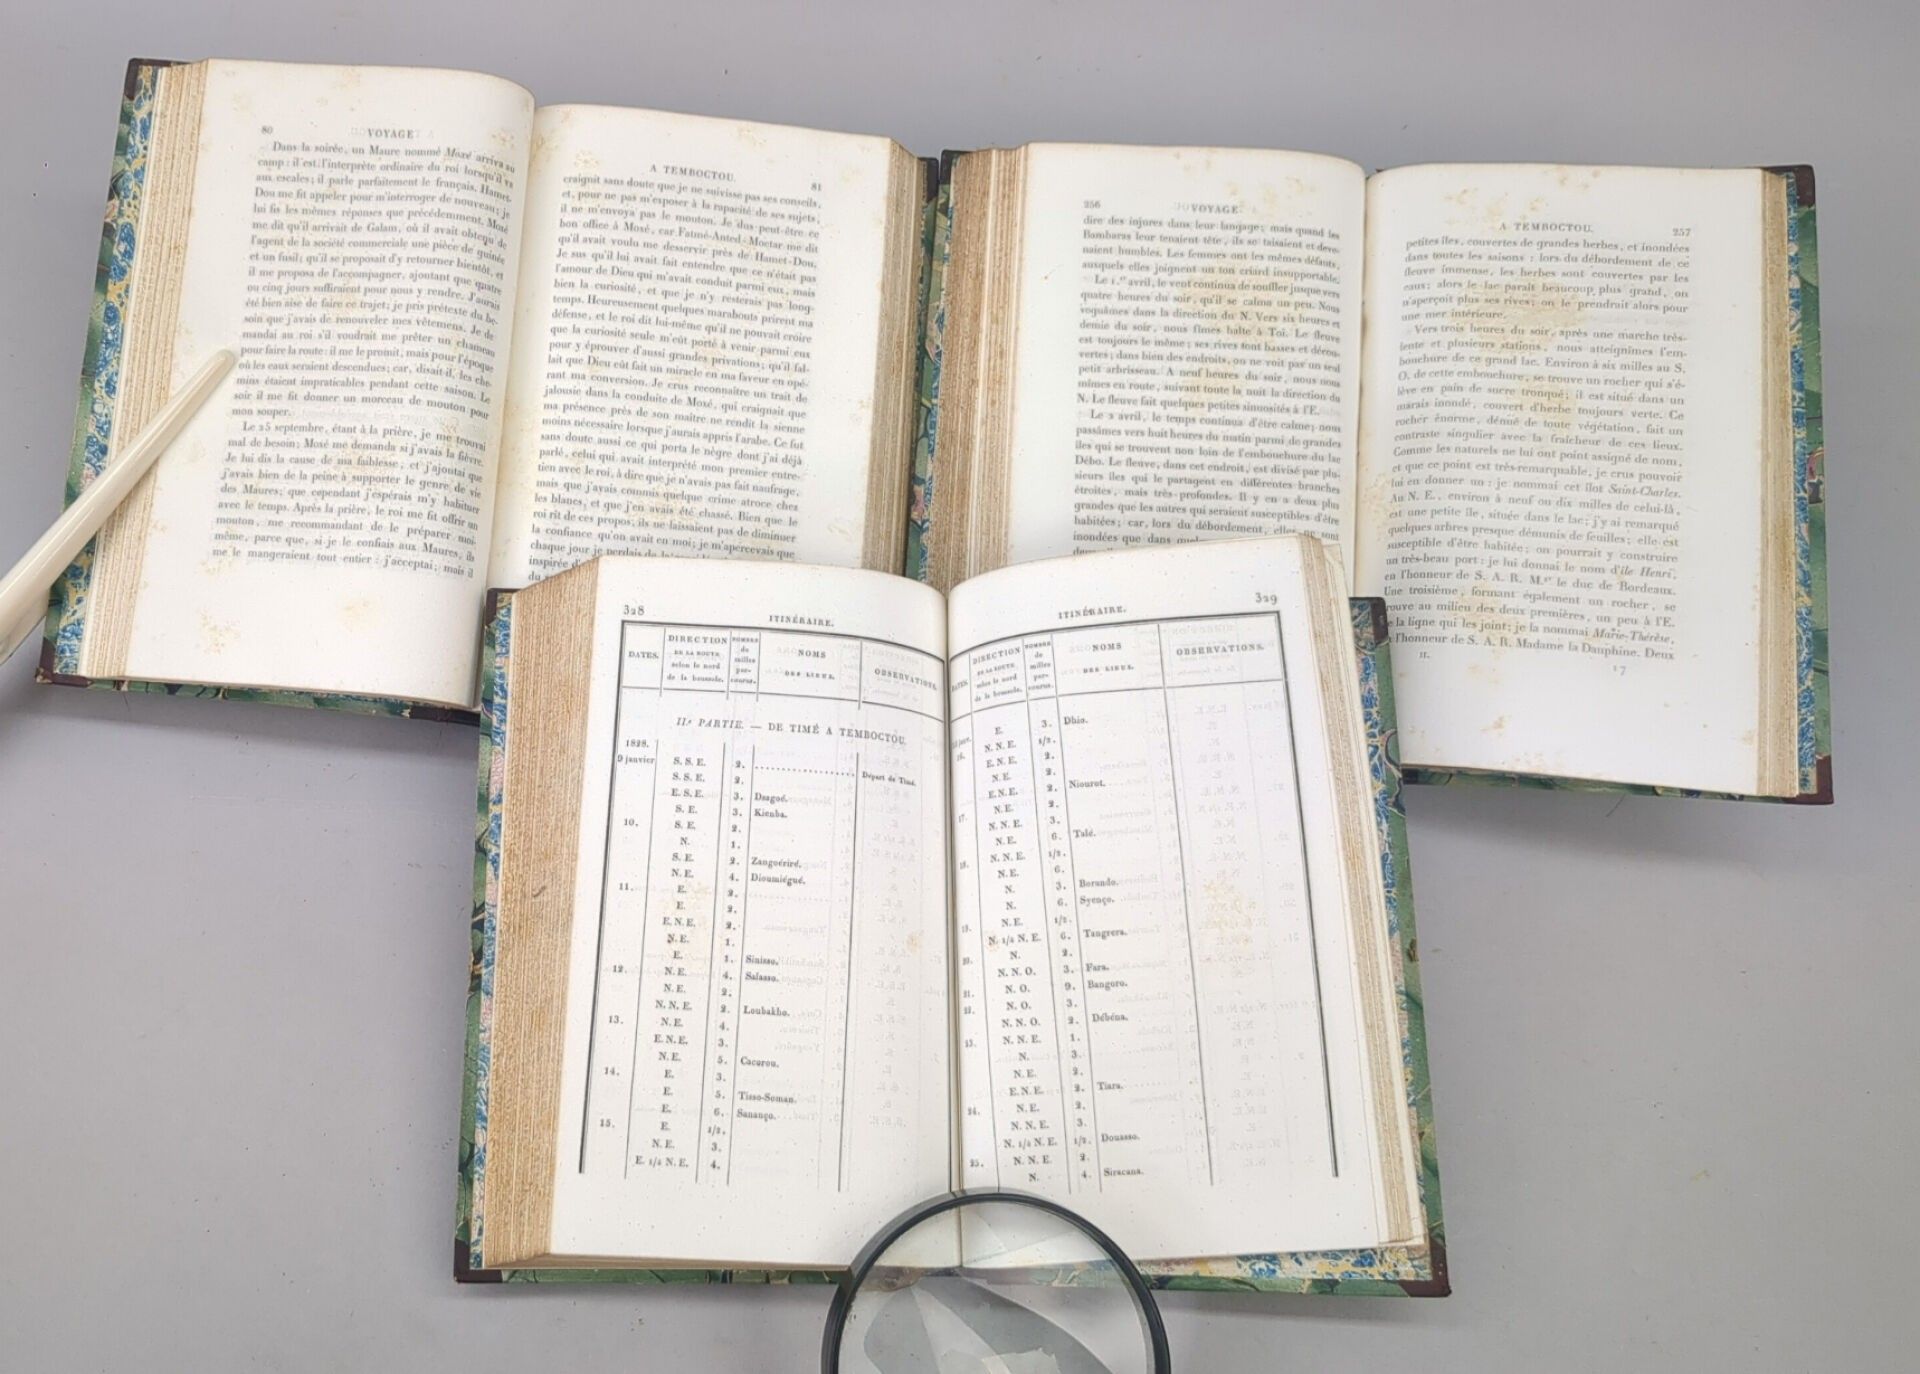 80
VOYAGE
Dans la soirée, un Maure nommé Moxé arriva au
camp : il est l'interprète ordinaire du roi lorsqu'il va
aux escales ; il parle parfaitement le français. Hamet-
Dou me fit appeler pour m'interroger de nouveau ; je
lui fis les mêmes réponses que précédemment. Moxé
me dit qu'il arrivait de Galam, où il avait obtenu de
l'agent de la société commerciale une pièce de guinée
et un fusil ; qu'il se proposait d'y retourner bientôt, et
il me proposa de l'accompagner, ajoutant que quatre
ou cinq jours suffiraient pour nous y rendre. J'aurais
été bien aise de faire ce trajet ; je pris prétexte du be-
soin que j'avais de renouveler mes vêtemens. Je de-
mandai au roi s'il voudrait me prêter un chameau
pour faire la route : il me le promit, mais pour l'époque
où les eaux seraient descendues ; car, disait-il, les che-
mins étaient impraticables pendant cette saison. Le
soir il me fit donner un morceau de mouton pour
mon souper.
Le 25 septembre, étant à la prière, je me trouvai
mal de besoin ; Moxé me demanda si j'avais la fièvre.
Je lui dis la cause de ma faiblesse, et j'ajoutai que
j'avais bien de la peine à supporter le genre de vie
des Maures ; que cependant j'espérais m'y habituer
avec le temps. Après la prière, le roi me fit offrir un
mouton, me recommandant de le préparer moi-
même, parce que, si je le confiais aux Maures, ils
me le mangeraient tout entier : j'acceptai ; mais il
A TEMBOCTOU.
81
craignit sans doute que je ne suivisse pas ses conseils,
et, pour ne pas m'exposer à la rapacité de ses sujets,
il ne m'envoya pas le mouton. Je dus peut-être ce
bon office à Moxé, car Fatmé-Anted-Moctar me dit
qu'il avait voulu me desservir près de Hamet-Dou.
Je sus qu'il lui avait fait entendre que ce n'était pas
l'amour de Dieu qui m'avait conduit parmi eux, mais
bien la curiosité, et que je n'y resterais pas long-
temps. Heureusement quelques marabouts prirent ma
défense, et le roi dit lui-même qu'il ne pouvait croire
que la curiosité seule m'eût porté à venir parmi eux
pour y éprouver d'aussi grandes privations ; qu'il fal-
lait que Dieu eût fait un miracle en ma faveur en opé-
rant ma conversion. Je crus reconnaître un trait de
jalousie dans la conduite de Moxé, qui craignait que
ma présence près de son maître ne rendît la sienne
moins nécessaire lorsque j'aurais appris l'arabe. Ce fut
sans doute aussi ce qui porta le nègre dont j'ai déjà
parlé, celui qui avait interprété mon premier entre-
tien avec le roi, à dire que je n'avais pas fait naufrage,
mais que j'avais commis quelque crime atroce chez
les blancs, et que j'en avais été chassé. Bien que le
roi rit de ces propos, ils ne laissaient pas de diminuer
la confiance qu'on avait en moi ; je m'apercevais que
chaque jour je perdais de
inspirée
du
256
VOYAGE
dire des injures dans leur langage ; mais quand les
Bambaras leur tenaient tête, ils se taisaient et deve-
naient humbles. Les femmes ont les mêmes défauts,
auxquels elles joignent un ton criard insupportable.
Le 1.er avril, le vent continua de souffler jusque vers
quatre heures du soir, qu'il se calma un peu. Nous
voguâmes dans la direction du N. Vers six heures et
demie du soir, nous fîmes halte à Toi. Le fleuve
est toujours le même ; ses rives sont basses et décou-
vertes ; dans bien des endroits, on ne voit pas un seul
petit arbrisseau. A neuf heures du soir, nous nous
mîmes en route, suivant toute la nuit la direction du
N. Le fleuve fait quelques petites sinuosités à l'E.
Le 2 avril, le temps continua d'être calme ; nous
passâmes vers huit heures du matin parmi de grandes
îles qui se trouvent non loin de l'embouchure du lac
Débo. Le fleuve, dans cet endroit, est divisé par plu-
sieurs îles qui le partagent en différentes branches
étroites, mais très-profondes. Il y en a deux plus
grandes que les autres qui seraient susceptibles d'être
habitées ; car, lors du débordement, elles ne sont
inondées que dans
A TEMBOCTOU.
257
petites îles, couvertes de grandes herbes, et inondées
dans toutes les saisons : lors du débordement de ce
fleuve immense, les herbes sont couvertes par les
eaux ; alors le lac paraît beaucoup plus grand, on
n'aperçoit plus ses rives ; on le prendrait alors pour
une mer intérieure.
Vers trois heures du soir, après une marche très-
lente et plusieurs stations, nous atteignîmes l'em-
bouchure de ce grand lac. Environ à six milles au S.
O. de cette embouchure, se trouve un rocher qui s'é-
lève en pain de sucre tronqué ; il est situé dans un
marais inondé, couvert d'herbe toujours verte. Ce
rocher énorme, dénué de toute végétation, fait un
contraste singulier avec la fraîcheur de ces lieux.
Comme les naturels ne lui ont point assigné de nom,
et que ce point est très-remarquable, je crus pouvoir
lui en donner un : je nommai cet îlot Saint-Charles.
Au N. E., environ à neuf ou dix milles de celui-là,
est une petite île, située dans le lac ; j'y ai remarqué
quelques arbres presque démunis de feuilles ; elle est
susceptible d'être habitée : on pourrait y construire
un très-beau port : je lui donnai le nom d'île Henri,
en l'honneur de S. A. R. M.gr le duc de Bordeaux.
Une troisième, formant également un rocher, se
trouve au milieu des deux premières, un peu à l'E.
la ligne qui les joint ; je la nommai Marie-Thérèse,
l'honneur de S. A. R. Madame la Dauphine. Deux
II.
17
328
ITINÉRAIRE.
DATES. DIRECTION DE LA ROUTE selon le nord de la boussole. NOMBRE de milles par- courus. NOMS DES LIEUX. OBSERVATIONS.
II.e PARTIE. — DE TIMÉ A TEMBOCTOU.
1828.
9 janvier S. S. E. 2. Départ de Timé.
S. S. E. 2.
E. S. E. 3. Dsagoé.
S. E. 3. Kienba.
10. S. E. 2.
N. 1.
S. E. 2. Zangoériré.
N. E. 4. Dioumiégué.
11. E. 2.
E. 2.
E. N. E. 2.
N. E. 1.
E. 1. Sinisso.
12. N. E. 4. Salasso.
N. E. 2.
N. N. E. 2. Loubakho.
13. N. E. 4.
E. N. E. 3.
N. E. 5. Cacorou.
14. E. 3.
E. 5. Tisso-Soman.
E. 6. Sananço.
15. E. 1/2.
N. E. 3.
E. 1/4 N. E. 4.
ITINÉRAIRE.
329
DATES. DIRECTION DE LA ROUTE selon le nord de la boussole. NOMBRE de milles par- courus. NOMS DES LIEUX. OBSERVATIONS.
E. 3. Dhio.
N. N. E. 1/2.
16. E. N. E. 2.
N. E. 2.
E. N. E. 2. Niourot.
N. E. 2.
17. N. N. E. 3.
N. E. 6. Talé.
18. N. N. E. 1/2.
N. E. 6.
N. 3. Borando.
N. 6. Syenço.
19. N. E. 1/2.
N. 1/4 N. E. 6. Tangrera.
20. N. 2.
N. N. O. 3. Fara.
21. N. O. 9. Bangoro.
22. N. O. 3.
N. N. O. 2. Débéna.
23. N. N. E. 1.
N. 3.
N. E. 2.
E. N. E. 2. Tiara.
24. N. E. 2.
N. N. E. 3.
N. 1/4 N. E. 1/2. Douasso.
25. N. N. E. 2.
N. 4. Siracana.